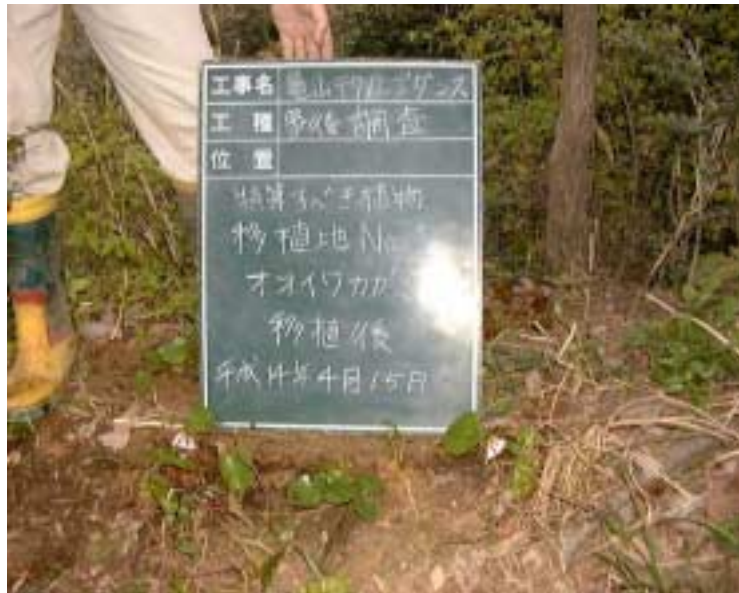 工事名 亀山テクノレジデンス
工種 事後調査
位置
特筆すべき植物
移植地 No.
オオイワカガ
移植後
平成14年4月15日